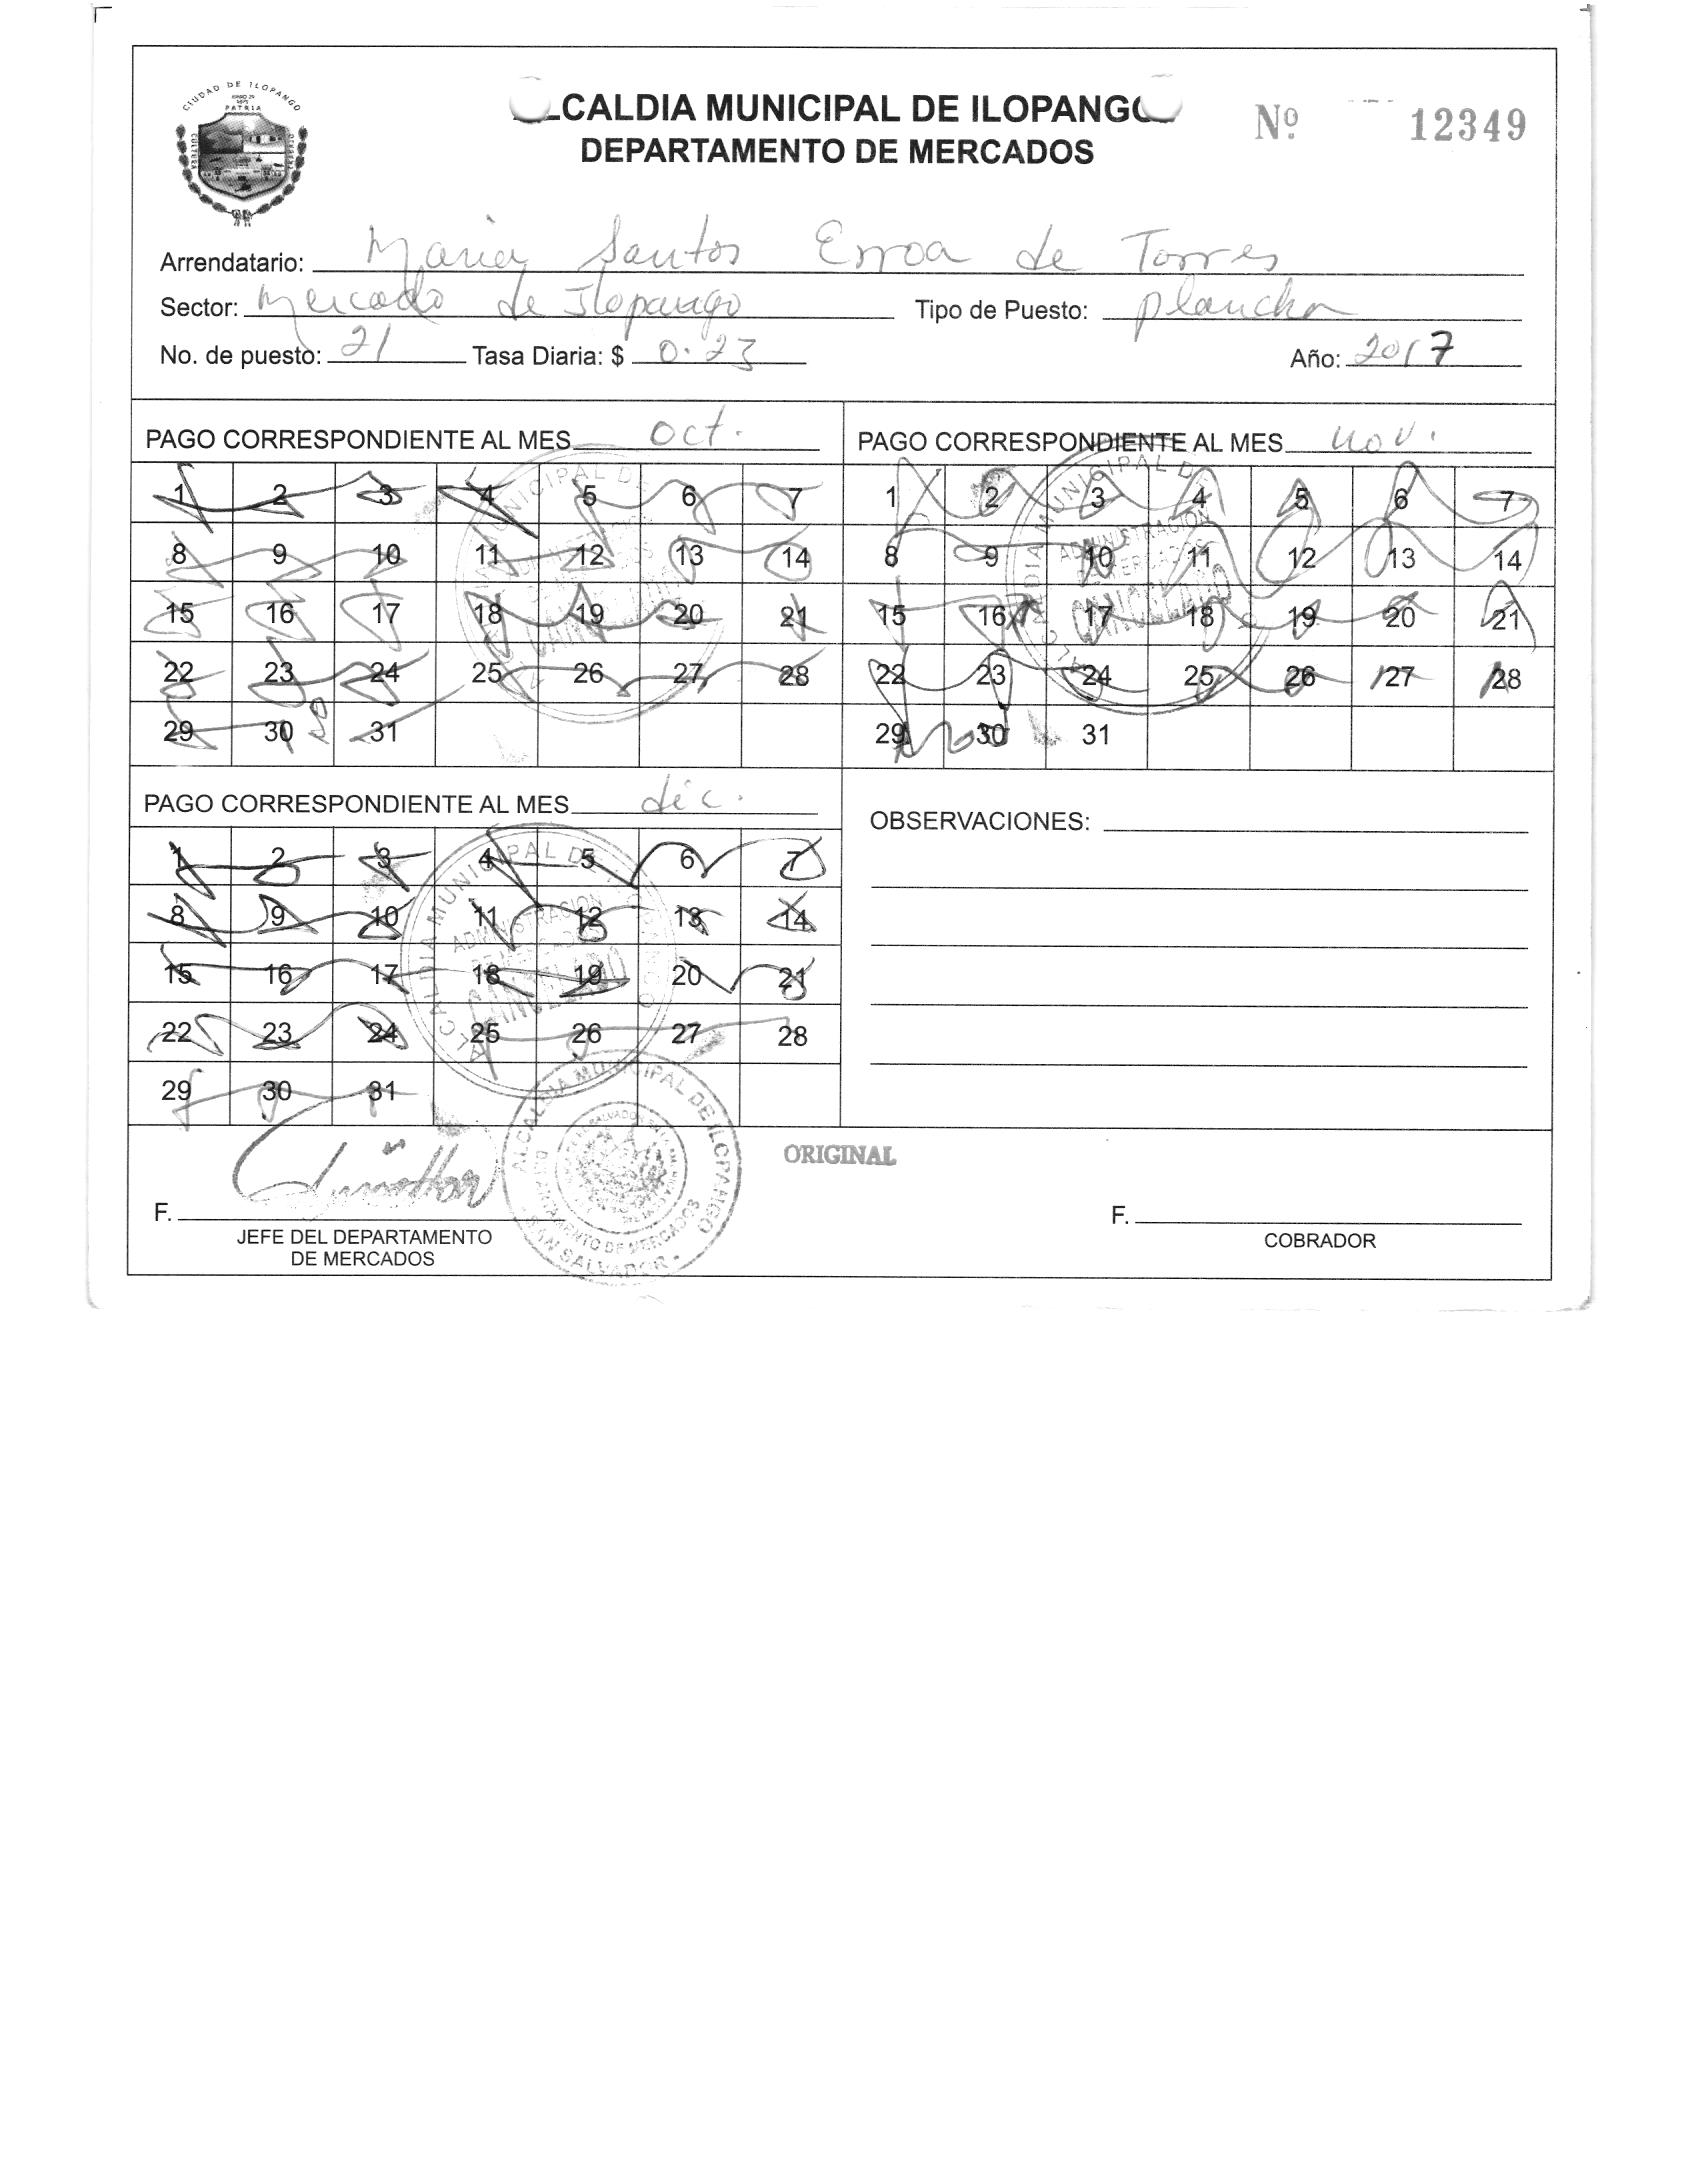 CIUDAD DE ILOPANGO
PATRIA
CULTURA
ALCALDIA MUNICIPAL DE ILOPANGO
DEPARTAMENTO DE MERCADOS
Nº 12349
Arrendatario: Maria Santos Erroa de Torres
Sector: Mercado de Ilopango Tipo de Puesto: plancha
No. de puesto: 21 Tasa Diaria: $ 0.23 Año: 2017
PAGO CORRESPONDIENTE AL MES oct.
1 2 3 4 5 6 7
8 9 10 11 12 13 14
15 16 17 18 19 20 21
22 23 24 25 26 27 28
29 30 31
PAGO CORRESPONDIENTE AL MES nov.
1 2 3 4 5 6 7
8 9 10 11 12 13 14
15 16 17 18 19 20 21
22 23 24 25 26 27 28
29 30 31
ALCALDIA MUNICIPAL DE
ADMINISTRACION
CANCELADO
PAGO CORRESPONDIENTE AL MES dic.
1 2 3 4 5 6 7
8 9 10 11 12 13 14
15 16 17 18 19 20 21
22 23 24 25 26 27 28
29 30 31
ALCALDIA MUNICIPAL DE ILOPANGO
ADMINISTRACION
CANCELADO
OBSERVACIONES:
ORIGINAL
F.
JEFE DEL DEPARTAMENTO
DE MERCADOS
ALCALDIA MUNICIPAL DE ILOPANGO
DEPARTAMENTO DE MERCADOS
SAN SALVADOR
F.
COBRADOR